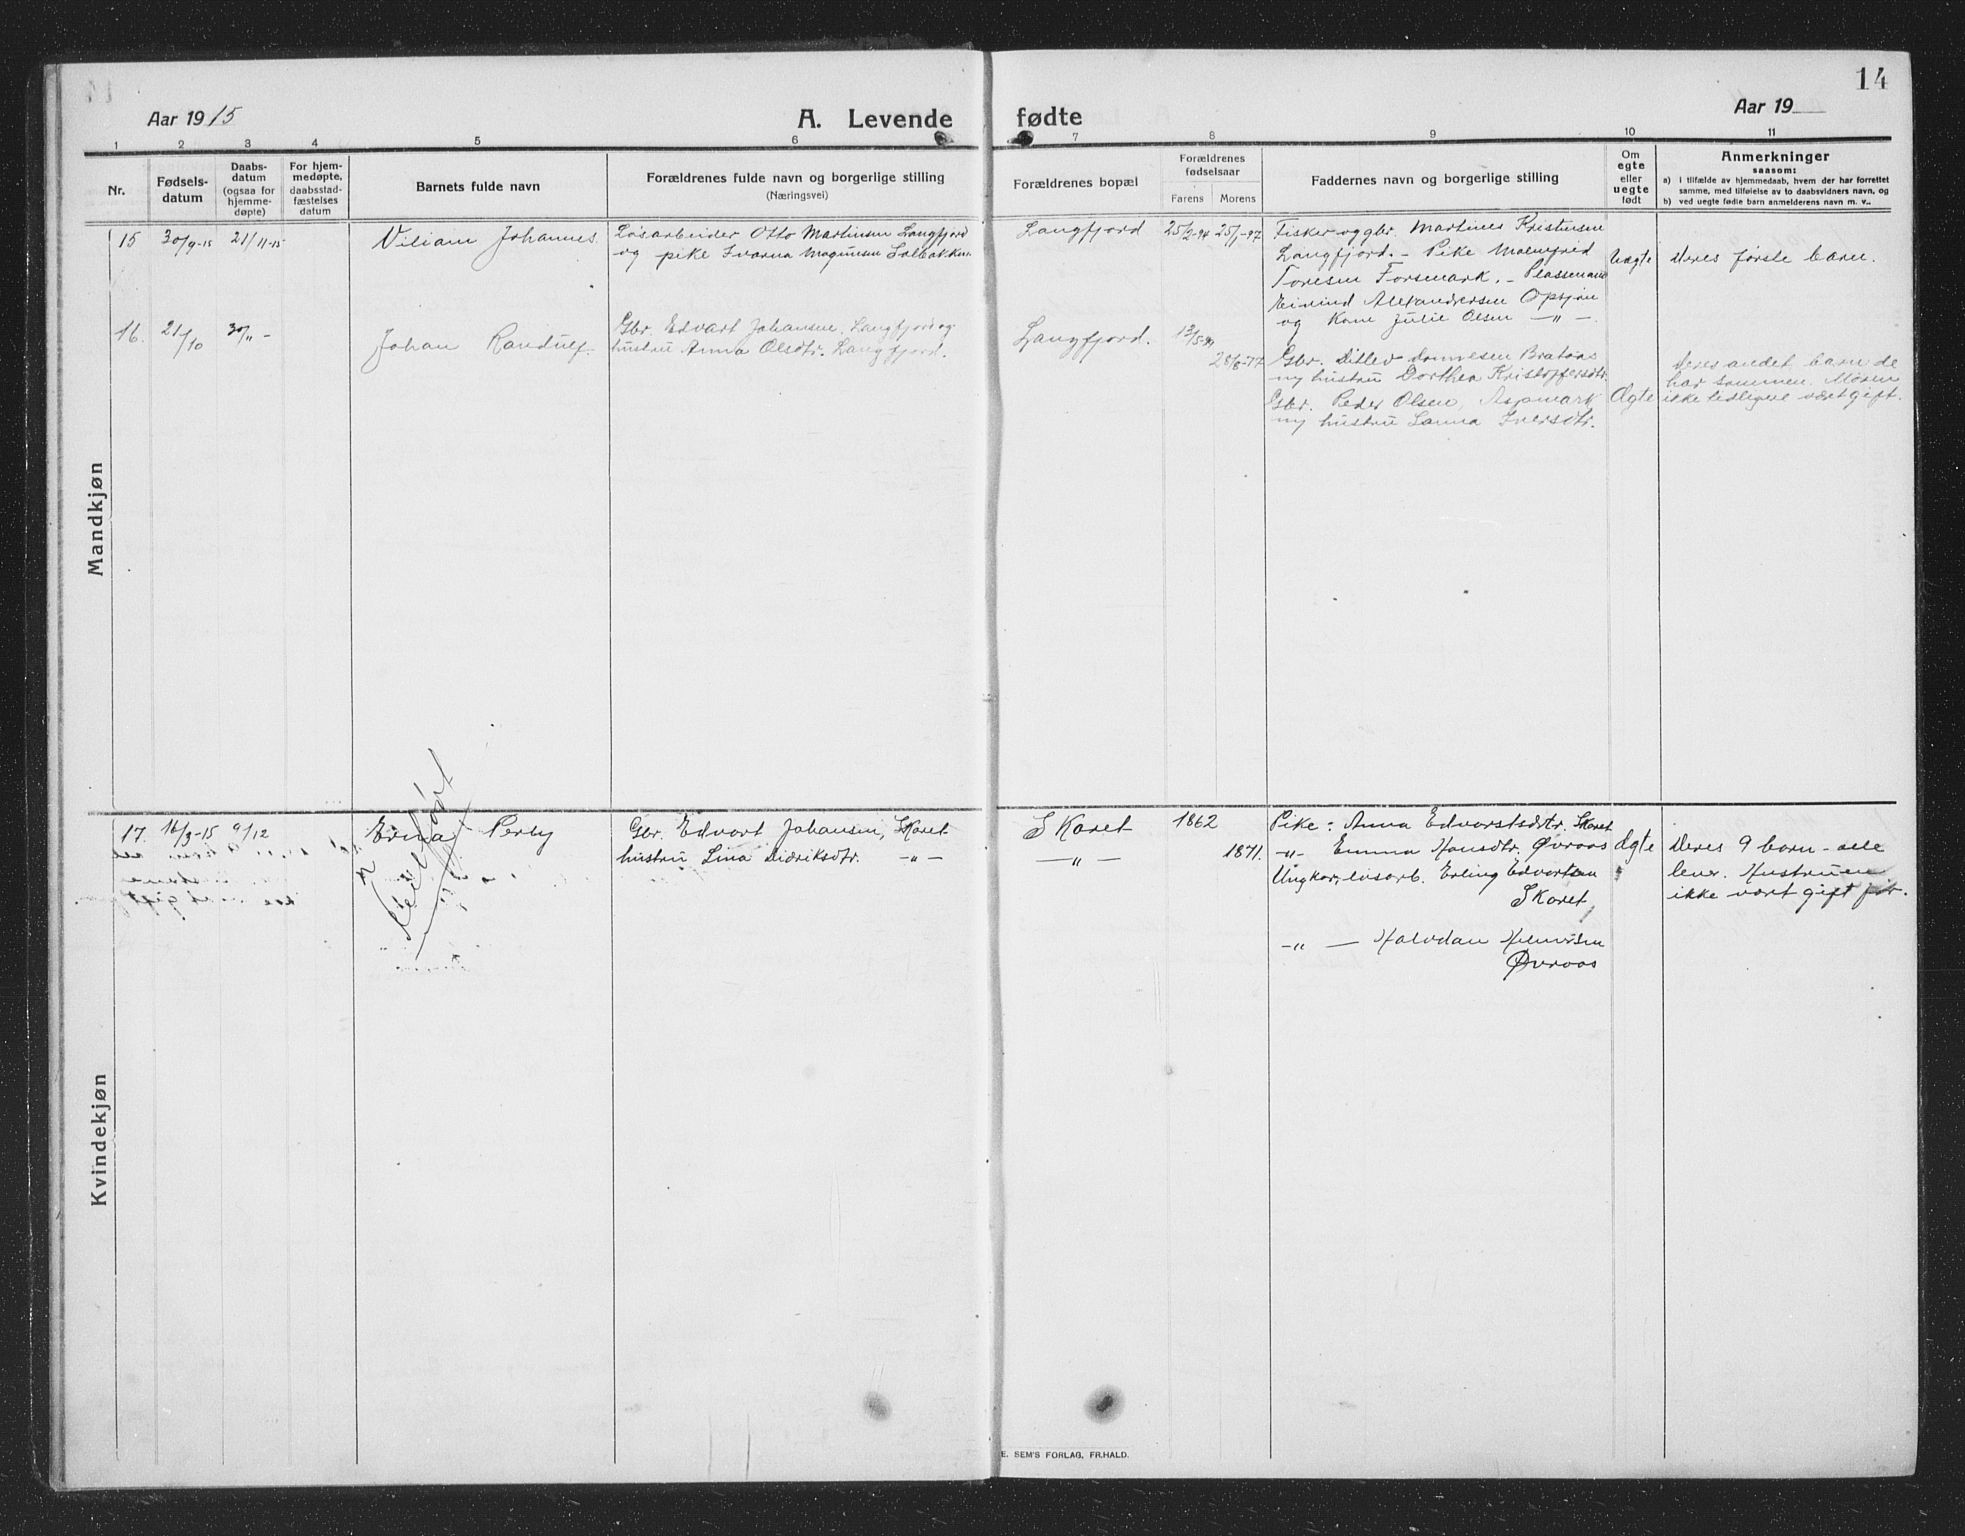 14
Aar 1915
A. Levende
fødte
Aar 19
1 2 3 4 5 6 7 8 9 10 11
Nr.
Fødsels-
datum
Daabs-
datum
(ogsaa for
hjemme-
døpte)
For hjem-
medøpte,
daabsstad-
fæstelses
datum
Barnets fulde navn
Forældrenes fulde navn og borgerlige stilling
(Næringsvei)
Forældrenes bopæl
Forældrenes
fødselsaar
Farens Morens
Faddernes navn og borgerlige stilling
Om
egte
eller
uegte
født
Anmerkninger
saasom:
a) i tilfælde av hjemmedaab, hvem der har forrettet
samme, med tilføielse av to daabsvidners navn, og
b) ved uegte fødte barn anmelderens navn m. v..
Mandkjøn
15 30/9-15 21/11-15 Viliam Johannes
Løsarbeider Otto Martinsen Langfjord
og pike Ivarna Magnusen Solbakken
Langfjord 25/2-94 25/1-97
Fisker og gbr. Martines Kristensen
Langfjord. - Pike Malmfrid
Toresen Forsmark. - Plassmann
Eivind Alexandersen Opsjøn
og Kone Julie Olsen -"-
Uægte
Deres første barn.
16. 21/10 30/11 - Johan Randulf.
Gbr. Edvart Johansen, Langfjord og
hustru Anna Olsdtr. Langfjord.
Langfjord. 13/5-
28/8-77
Gbr. Ditlev Brataas
og hustru Dorthea Kristoffersdtr.
Gbr. Peder Olsen, Aspmark
og hustru Sanna Iversdtr.
Ægte
Deres andet barn de
har sammen. Moren
ikke tidligere vært gift.
Kvindekjøn
17. 16/3-15 9/12 Erna Perly
Feilført
Gbr. Edvart Johansen, Skaret
hustru Lina Didriksdtr. -"-
Skaret 1862
-"- 1871.
Pike: Anna Edvartsdtr. Skaret
-"- Emma Hansdtr. Øvraas
Ungkar, løsarb. Erling Edvartsen
Skaret
-"- — Halvdan Henriksen
Øvraas
Ægte
Deres 9 barn - alle
lever. Hustruen
ikke vært gift før.
E. SEM'S FORLAG, FR.HALD.